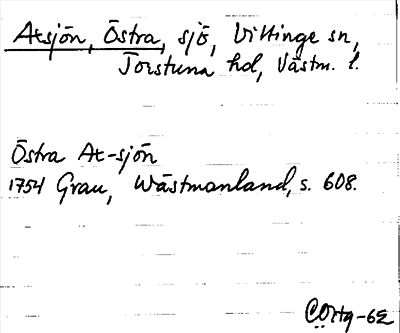 Axsjön, Östra, sjö, Vittinge sn,
Torstuna hd, Västm. l.
Östra Ax-sjön
1754 Grau, Wästmanland, s. 608.
-62